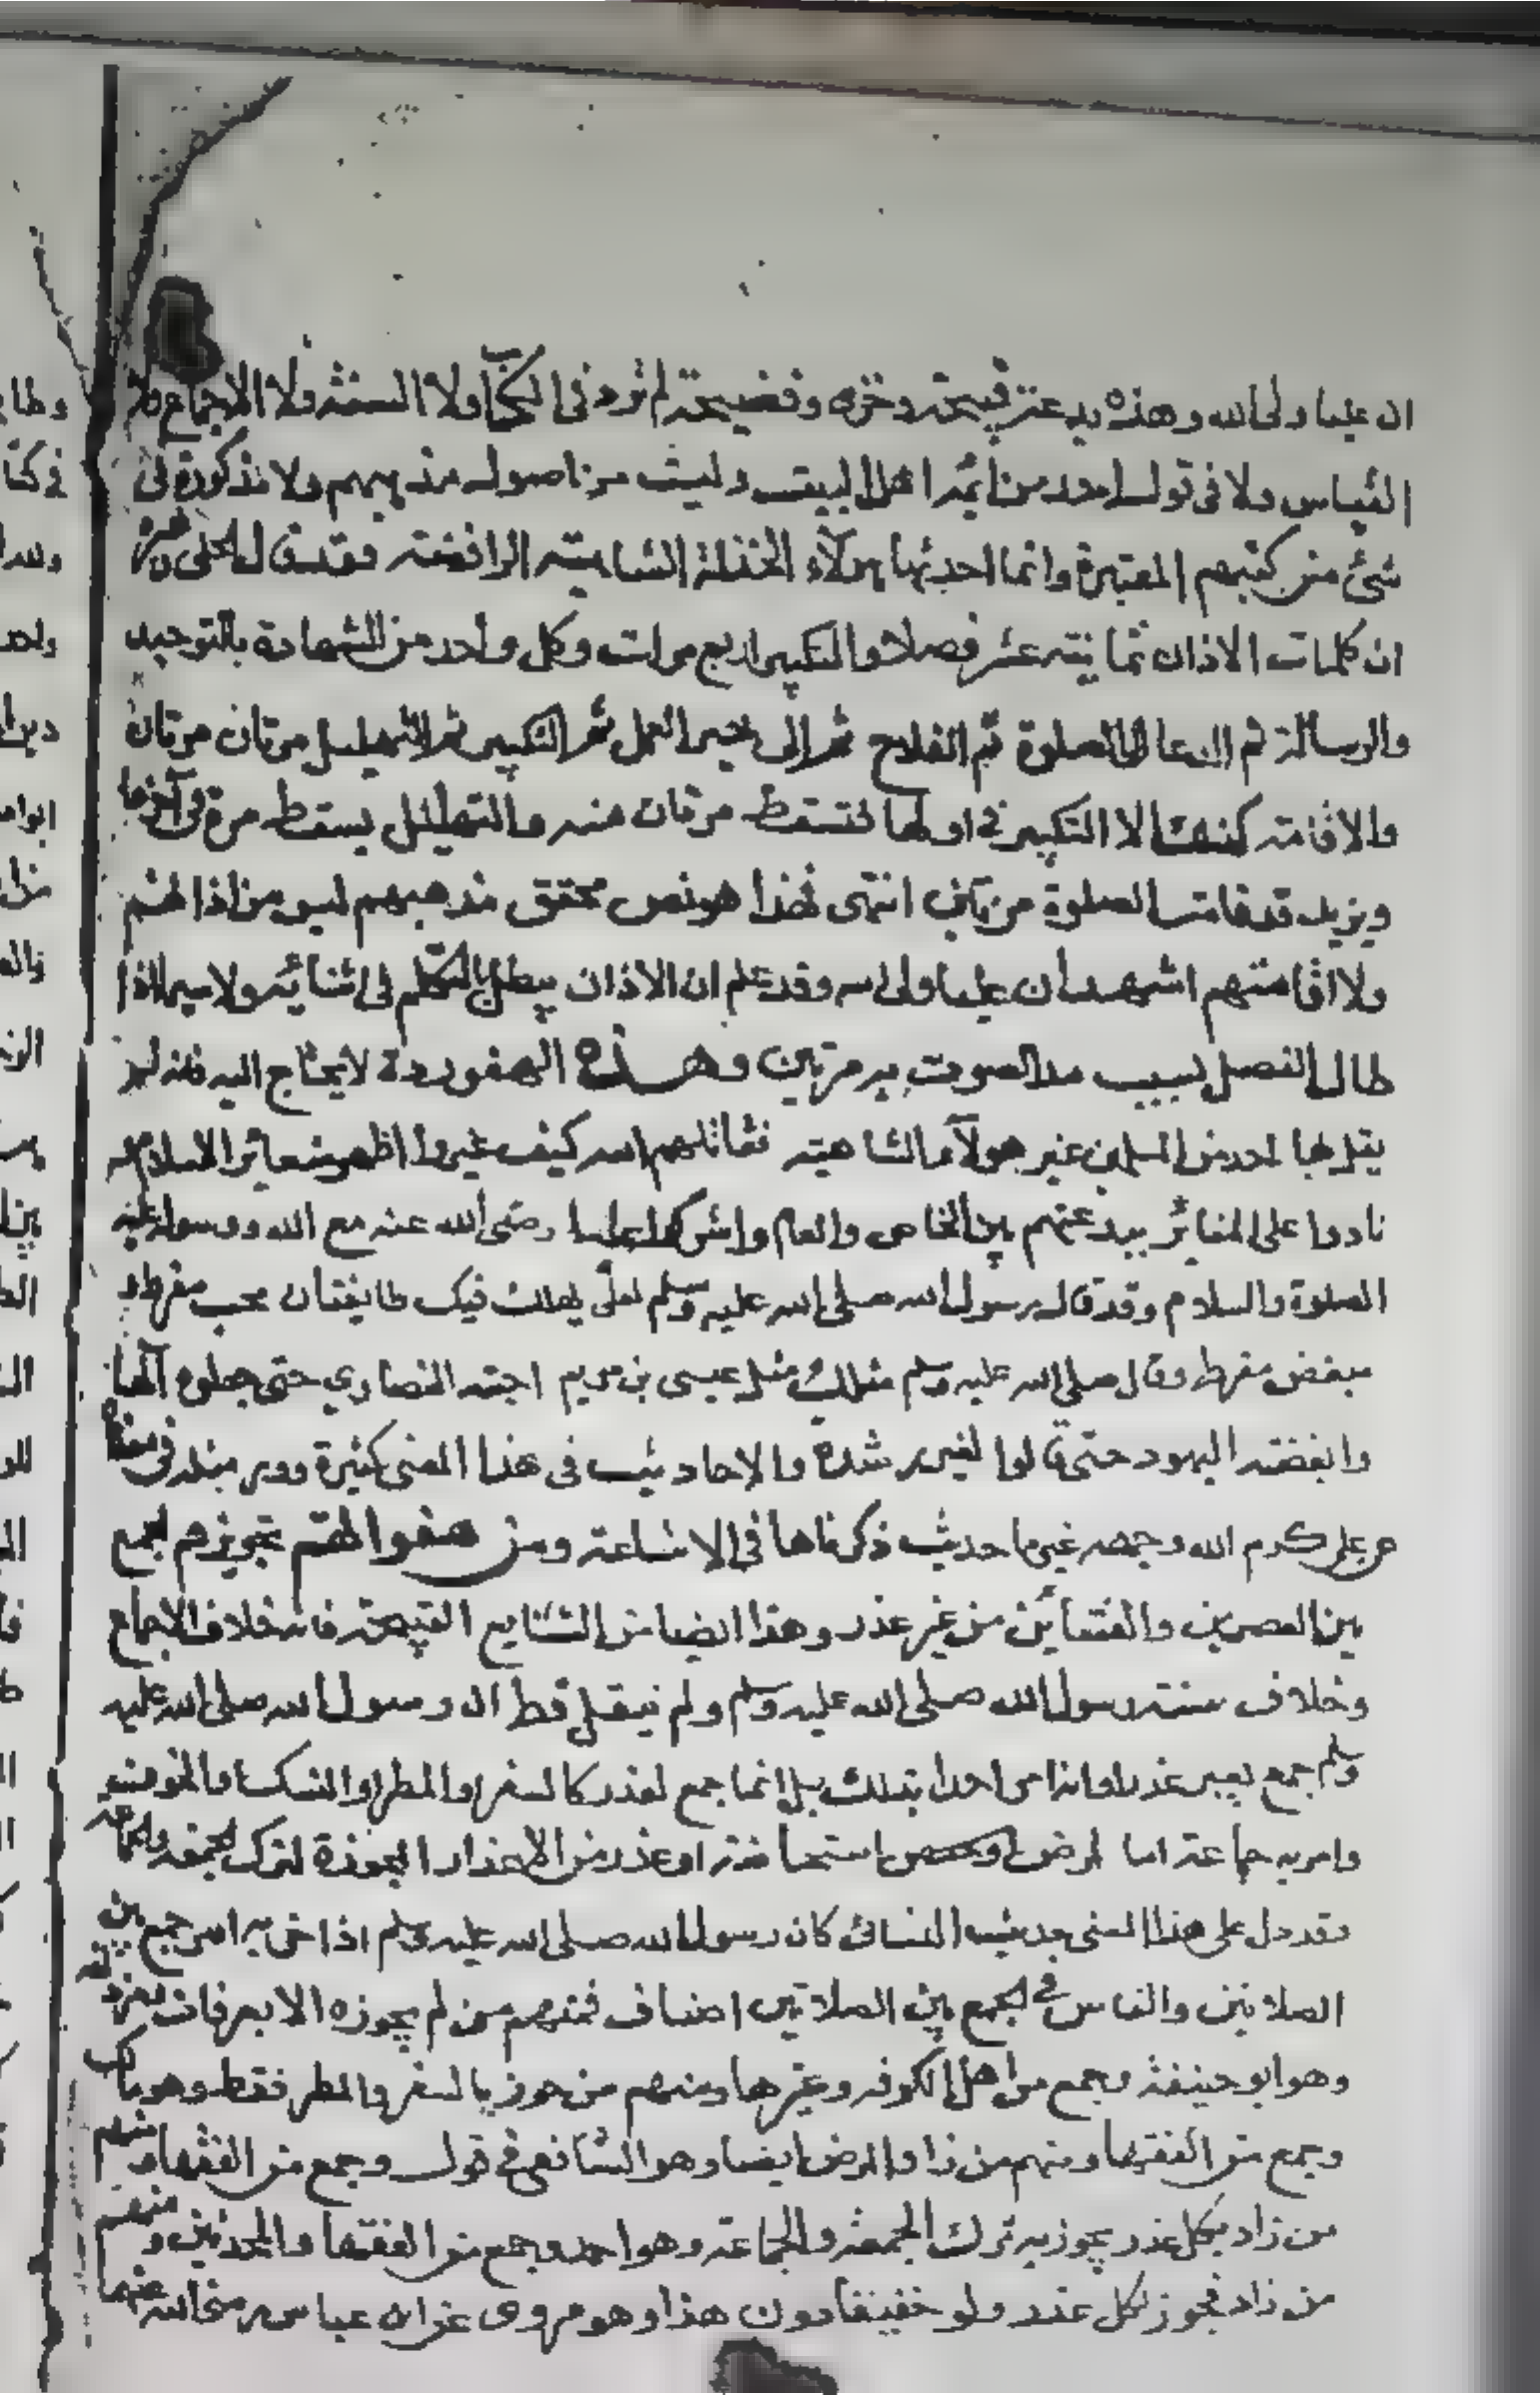 ان عليا ولي الله وهذه بدعة قبيحة وخزي وفضيحة لم ترد في الكتاب ولا السنة ولا الاجماع ولا
القياس ولا في قول احد من ائمة اهل البيت وليست من اصول مذهبهم ولا مذكورة في
شئ من كتبهم المعتبرة وانما احدثها هولاء الخذلة الشاهية الرافضة فقد قال الحلي
ان كلمات الاذان ثمانية عشر فصلا والتكبير اربع مرات وكل واحد من الشهادة بالتوحيد
والرسالة ثم الدعا الى الصلوة ثم الفلاح ثم الى خير العمل ثم التكبير ثم التهليل مرتان مرتان
والاقامة كذلك الا التكبير في اولها فتسقط مرتان منه والتهليل يسقط مرة في آخرها
ويزيد قد قامت الصلوة مرتين انتهى فهذا هو نص محقق مذهبهم ليس من اذانهم
ولا اقامتهم اشهد ان عليا ولي الله وقد علم ان الاذان يبطل بالتكلم في اثنائه ولا سيما اذا
طال الفصل بسبب مد الصوت به مرتين وهذه الهفوة ردة لا يحتاج اليه فانه لم
يقل بها احد من المسلمين غير هولاء الشاهية فقاتلهم الله كيف غيروا اظهر شعائر الاسلام
نادوا على المنائر ببدعتهم بين الخاص والعام واشركوا عليا رضي الله عنه مع الله ورسوله عليه
الصلوة والسلام وقد قال رسول الله صلى الله عليه وسلم لعلي يهلك فيك طايفتان محب مفرط و
مبغض مفرط وقال صلى الله عليه وسلم مثلك مثل عيسى بن مريم احبته النصاري حتى جعلوه الها
وابغضته اليهود حتى قالوا لغير رشدة والاحاديث في هذا المعنى كثيرة وورد مثله في
عن علي كرم الله وجهه غير ما حديث ذكرناها في الاشاعة ومن هفواتهم تجويزهم الجمع
بين العصرين والعشائين من غير عذر وهذا ايضا من الشنايع القبيحة فانه خلاف الاجماع
وخلاف سنة رسول الله صلى الله عليه وسلم ولم ينقل قط ان رسول الله صلى الله عليه
وسلم جمع بغير عذر او انه امر احدا بذلك بل انما جمع لعذر كالسفر والمطر والنسك والخوف
وامر به جماعة اما لمرض او استحاضة او عذر من الاعذار المجوزة لترك الجمعة والجماعة
وقد دل على هذا المعنى حديث النسائى كان رسول الله صلى الله عليه وسلم اذا حزبه امر جمع بين
الصلاتين والناس في الجمع بين الصلاتين اصناف فمنهم من لم يجوزه الا بعرفات
وهو ابو حنيفة وجمع من اهل الكوفة وغيرها ومنهم من جوز بالسفر والمطر فقط وهو مالك
وجمع من الفقها ومنهم من زاد المرض ايضا وهو الشافعي في قول وجمع من الفقها ومنهم
من زاد بكل عذر يجوز به ترك الجمعة والجماعة وهو احمد وجمع من الفقها والمحدثين ومنهم
من زاد فجوز لكل عذر ولو خفيفا دون هذا وهو مروي عن ابن عباس رضي الله عنهما